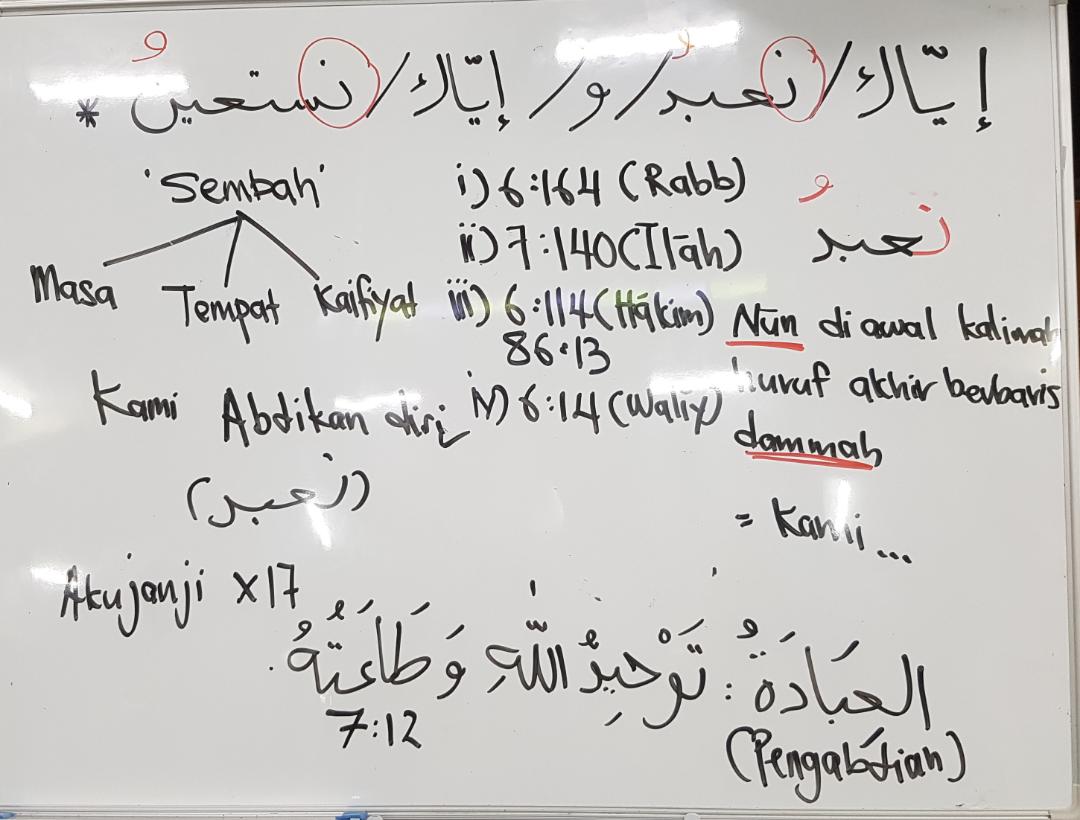 * إيّاك / نعبدُ / و / إيّاك / نستعينُ
'Sembah'
Masa Tempat Kaifiyat
Kami Abdikan diri
(نعبد)
Akujanji x17
i) 6:164 (Rabb)
ii) 7:140 (Ilāh)
iii) 6:114 (Hākim)
86:13
iv) 6:14 (Waliy)
نعبدُ
Nūn di awal kalimah
huruf akhir berbaris
dammah
= Kami ...
العِبَادَةُ : تَوْحِيدُ اللّٰهِ وَطَاعَتُهُ .
7:12
(Pengabdian)